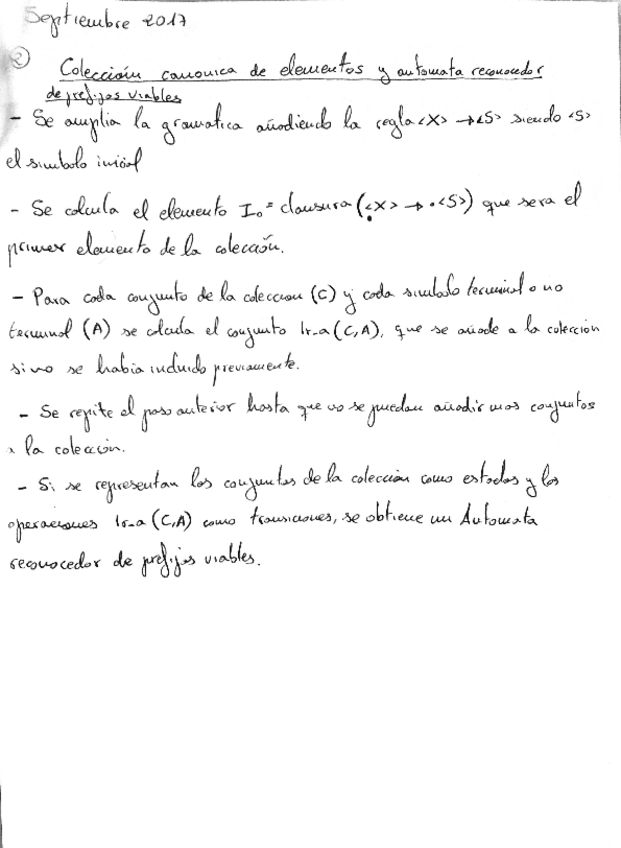 Septiembre 2017
② Colección canonica de elementos y automata reconocedor
de prefijos viables
- Se amplia la gramatica añadiendo la regla <X> → <S> siendo <S>
el simbolo inicial
- Se calcula el elemento I₀ = clausura (<X> → •<S>) que sera el
primer elemento de la colección.
- Para cada conjunto de la coleccion (C) y cada simbolo terminal o no
terminal (A) se calcula el conjunto Ir-a (C,A), que se añade a la colección
si no se habia incluido previamente.
- Se repite el paso anterior hasta que no se puedan añadir mas conjuntos
a la colección.
- Si se representan los conjuntos de la colección como estados y las
operaciones Ir-a (C,A) como transiciones, se obtiene un Automata
reconocedor de prefijos viables.